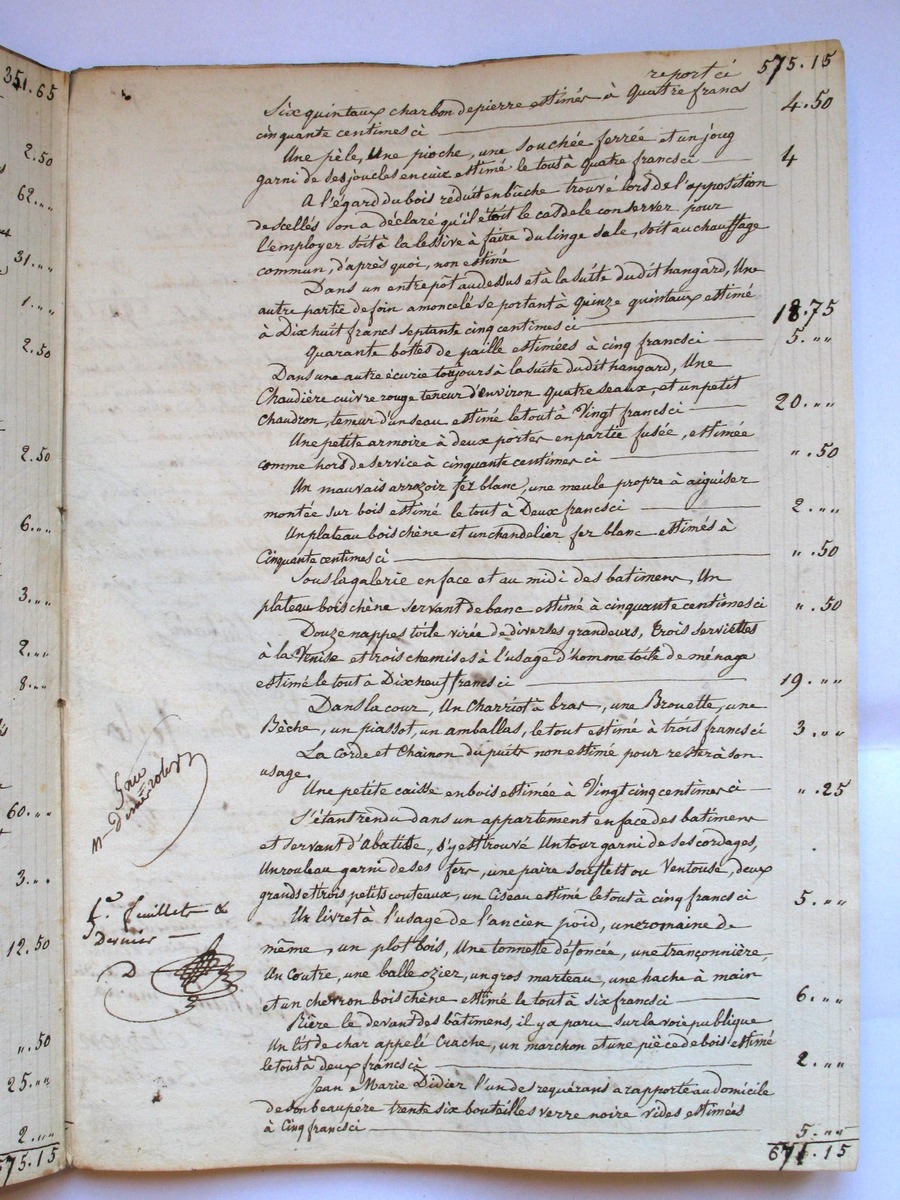 351.65
2.50
62.""
31.""
1.""
2.50
2.50
6.""
3.""
2.""
8.""
60.""
3.""
12.50
".50
25.""
2.""
575.15
report ci 575.15
Six quintaux charbon de pierre estimés à Quatre francs
cinquante centimes ci 4.50
Une pèle, une pioche, une souchée ferrée et un joug
garni de ses joucles en cuir estimé le tout à Quatre francs ci 4
A l'égard du bois réduit en bûche trouvé lors de l'apposition
de scellés on a déclaré qu'il étoit le cas de le conserver pour
l'employer soit à la lessive à faire du linge sale, soit au chauffage
commun, d'après quoi, non estimé
Dans un entrepot au dessus et à la suite du dit hangard, Une
autre partie de foin amoncelé se portant à quinze quintaux estimé
à Dix huit francs septante cinq centimes ci 18.75
Quarante bottes de paille estimées à cinq francs ci 5.""
Dans une autre écurie toujours à la suite du dit hangard, Une
Chaudière cuivre rouge teneur d'environ quatre seaux, et un petit
Chaudron, teneur d'un seau estimé le tout à Vingt francs ci 20.""
Une petite armoire à deux portes en partie fusée, estimée
comme hors de service à cinquante centimes ci ".50
Un mauvais arrozoir fer blanc, une meule propre à aiguiser
montée sur bois estimé le tout à Deux francs ci 2.""
Un plateau bois chêne et un chandelier fer blanc estimés à
Cinquante centimes ci ".50
Sous la galerie en face et au midi des batimens, Un
plateau bois chêne servant de banc estimé à cinquante centimes ci ".50
Douze nappes toile virée de diverses grandeurs, trois serviettes
à la Venise et trois chemises à l'usage d'homme toile de ménage
estimé le tout à Dix neuf francs ci 19.""
Dans la cour, Un Charriot à bras, une Brouette, une
Bèche, un piassot, un amballas, le tout estimé à trois francs ci 3.""
La corde et Chainon du puits non estimé pour rester à son
usage.
Une petite caisse en bois estimée à Vingt cinq centimes ci ".25
S'étant rendu dans un appartement en face des batimens
et servant d'Abatisse, s'y est trouvé Un tour garni de ses cordages,
Un rouleau garni de ses fers, une paire soufflett ou Ventouse, deux
grands et trois petits couteaux, un Ciseau estimé le tout à cinq francs ci 5.""
Un livret à l'usage de l'ancien poid, une romaine de
même, un plot bois, Une tonnette défoncée, une trançonnière,
Un Coutre, une balle ozier, un gros marteau, une hache à main
et un chevron bois chêne estimé le tout à six francs ci 6.""
Rière le devant des bâtimens, il y a paru sur la voie publique
Un lit de char appelé Crache, un marchon et une pièce de bois estimé
le tout à deux francs ci 2.""
Jean Marie Didier l'un des requérans a rapporté au domicile
de son beau père trente six bouteilles verre noire vides estimées
à Cinq francs ci 5.""
671.15
5.e feuillet &
Dernier
D